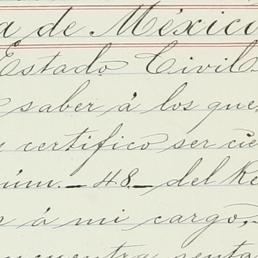 a de México
Estado Civil
saber á los que
certifico ser cie
núm. 48 del Re
á mi cargo,
ncuentra senta